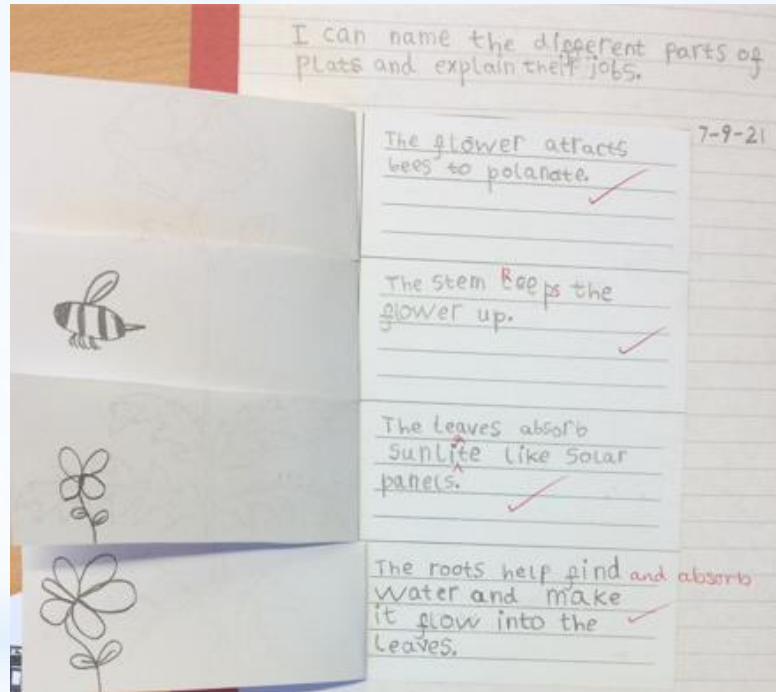 I can name the different parts of
Plats and explain their jobs.
7-9-21
The flower attracts
bees to polanate.
The Stem keeps the
flower up.
The leaves absorb
Sunlite like Solar
panels.
The roots help find and absorb
water and make
it flow into the
Leaves.